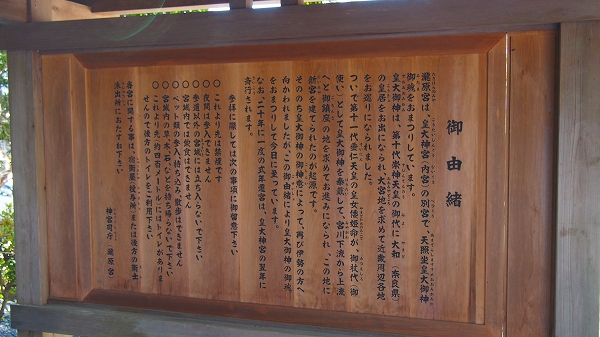 御由緒
瀧原宮は、皇大神宮(内宮)の別宮で、天照坐皇大御神
御魂をおまつりしています。
皇大御神は、第十代崇神天皇の御代に大和(奈良県)
の皇居をお出になられ、大宮地を求めて近畿周辺各地
をお巡りになられました。
ついで第十一代垂仁天皇の皇女倭姫命が、御杖代(御
使い)として皇大御神を奉戴して、宮川下流から上流
へと御鎮座の地を求めてお進みになられ、この地に
新宮を建てられたのが起源です。
そののち皇大御神の御神意によって、再び伊勢の方へ
向かわれましたが、この御由緒により皇大御神の御魂
をおまつりして今日に至っています。
なお、二十年に一度の式年遷宮は、皇大神宮の翌年に
斎行されます。
参拝に際しては次の事項に御留意下さい
○これより先は禁煙です
○夜間は参入できません
○参道以外の宮域には立ち入らないで下さい
○宮域内で飲食はできません
○ペット類の参入、持ち込み、散歩はできません
○宮域内の草、木、石などを持ち帰らないで下さい
○これより先、約四百メートルにはトイレがありま
せんので後方のトイレをご利用下さい
当宮に関する事は、宿衛屋(授与所)または後方の衛士
派出所におたずね下さい
神宮司庁(瀧原宮)